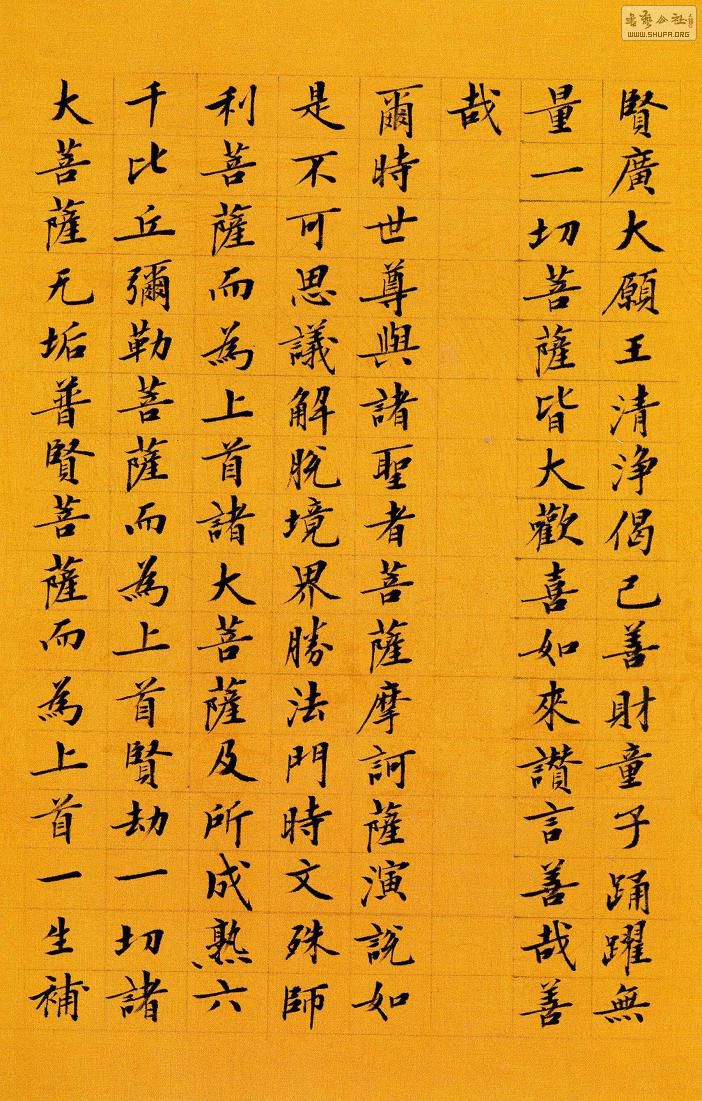 賢廣大願王清淨偈已善財童子踊躍無
量一切菩薩皆大歡喜如來讃言善哉善
哉
爾時世尊與諸聖者菩薩摩訶薩演說如
是不可思議解脫境界勝法門時文殊師
利菩薩而為上首諸大菩薩及所成熟六
千比丘彌勒菩薩而為上首賢劫一切諸
大菩薩无垢普賢菩薩而為上首一生補
書藝公社
WWW.SHUFA.ORG